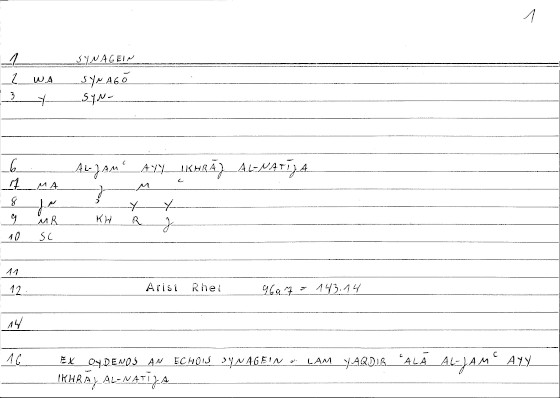 1
1 SYNAGEIN
2 WA SYNAGŌ
3 Y SYN-
6 AL-JAMʿ AYY IKHRĀJ AL-NATĪJA
7 MA J M ʿ
8 JN ʾ Y Y
9 MR KH R J
10 SC
11
12 Arist Rhet 96a7 = 143.14
14
16 EX OYDENOS AN ECHOIS SYNAGEIN - LAM YAQDIR ʿALĀ AL-JAMʿ AYY
IKHRĀJ AL-NATĪJA